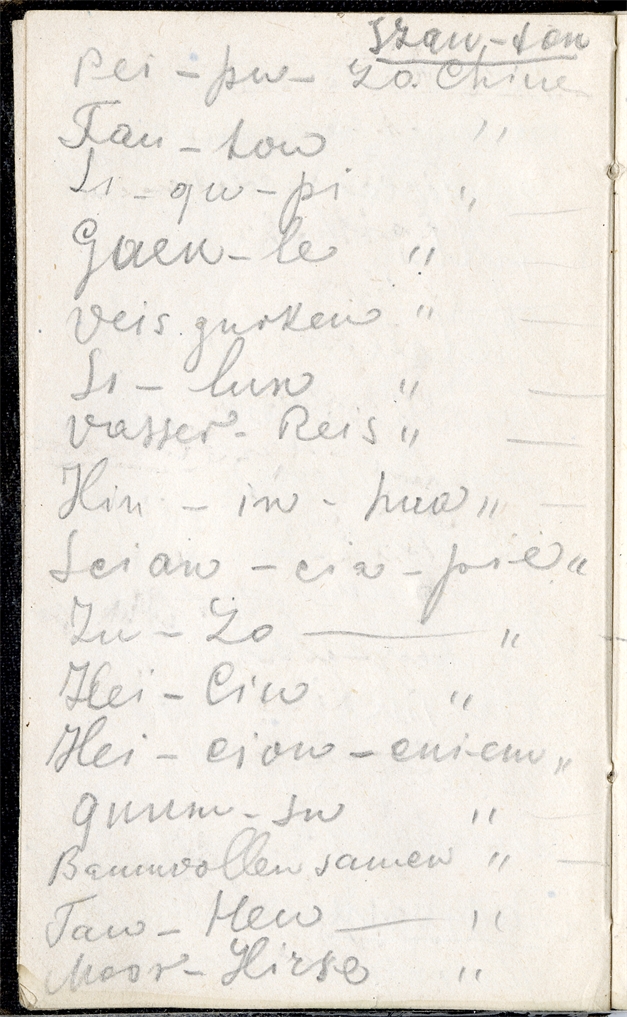 Szan-ton
Pei - pu - Zo. Chine
Kau - tow "
Si - qu - pi "
Gaen - le "
Veis gurken "
Si - lun "
Vasser - Reis "
Hin - in - hua "
Scian - cia - pie "
Zu - Zo — "
Hei - Ciu "
Hei - ciow - "
- su "
Baumvollen samen "
Tau - Hew — "
Moor - Hirse "